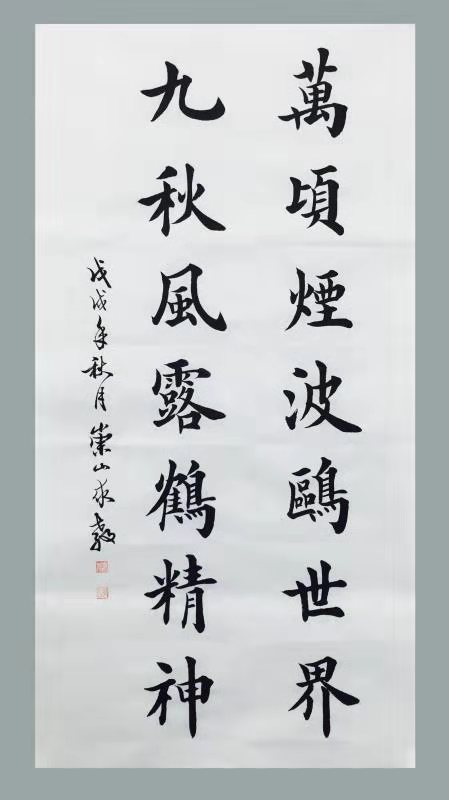 萬頃煙波鷗世界
九秋風露鶴精神
戊戌年秋月崇山求教